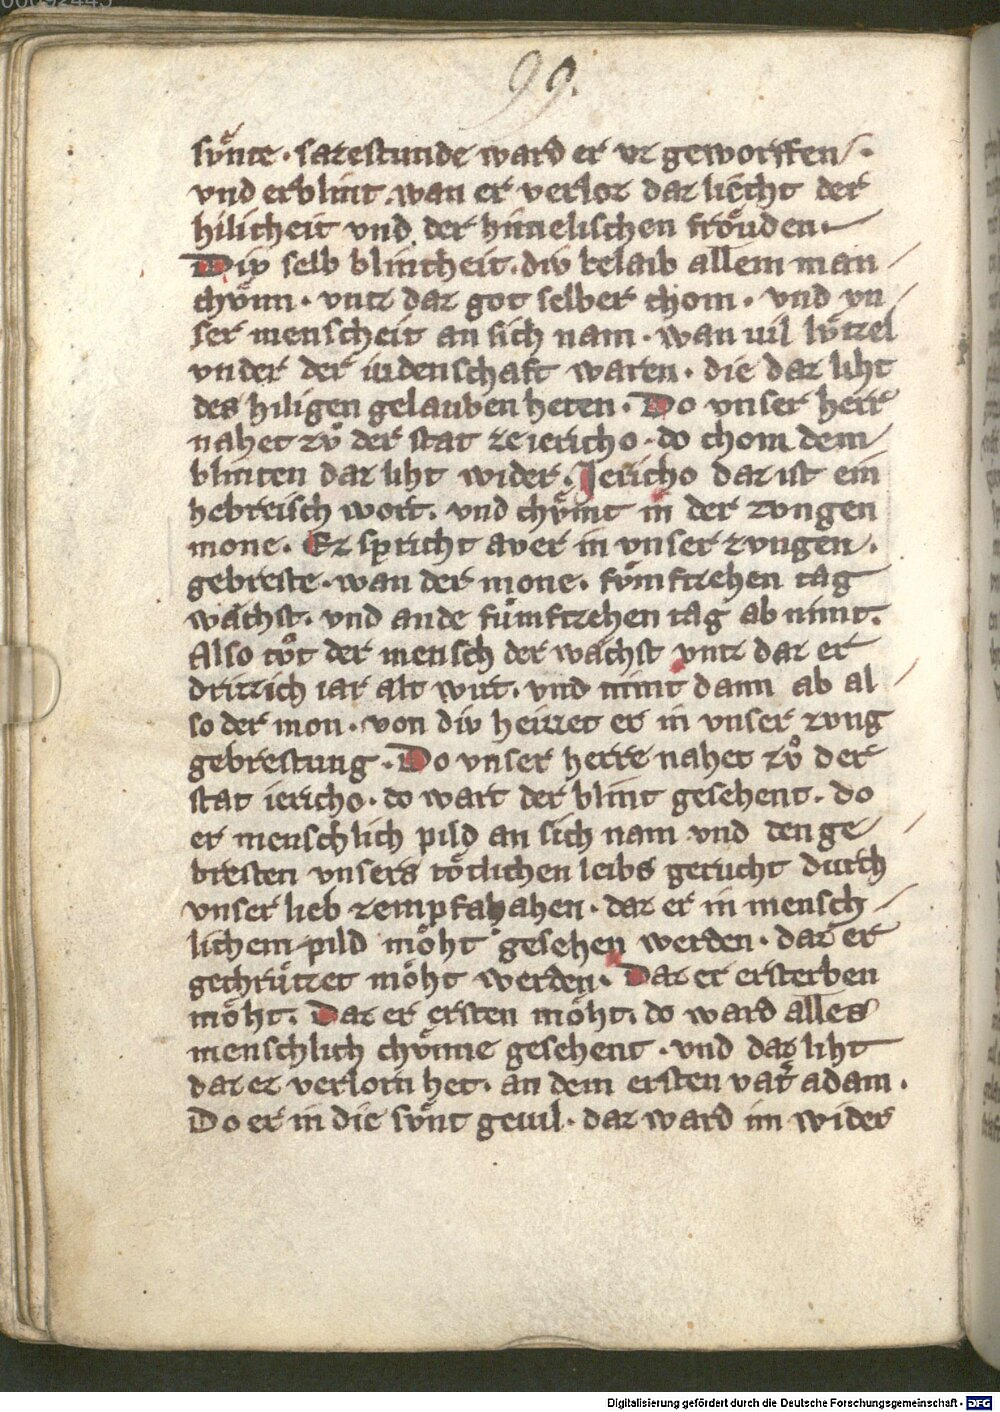 99.
svͤnte · sazestunde ward er vz geworffen ·
vnd erblint. wan er verloz daz liecht der
hilicheit vnd der himelischen frovͤden.
Div selb blintheit. div belaib allem man
chvͤnn · vntz daz got selber chom · vnd vn
ser menscheit an sich nam · wan vil lvͤtzel
vnder der iudenschaft waren · die daz liht
des hiligen gelauben heten · Do vnser herr
nahet zvͦ der stat ze iericho · do chom dem
blinten daz liht wider. Jericho daz ist ein
hebreisch wort. vnd chvͤmt in der zvngen
mone. Ez spricht aver in vnser zvngen.
gebreste · wan der mone. fvͤmftzehen tag
waͤchst. vnd ande fuͤmftzehen tag ab nimt.
Also tvͦt der mensch der waͤchst vntz daz er
drizzich iar alt wirt. vnd nimt dann ab al
so der mon · von div heizzet er in vnser zvng
gebrestung · Do vnser herre nahet zvͦ der
stat iericho · do wart der blint gesehent. do
er menschlich pild an sich nam vnd den ge
bresten vnsers toͤtlichen leibs gerucht durch
vnser lieb zempfahahen · daz er in mensch
lichem pild moͤht gesehen werden · daz er
gechruͤtzet moͤht werden. Daz er ersterben
moͤht. Daz er ersten moͤht. do ward alles
menschlich chvͤnne gesehent · vnd daz liht
daz ez verlorn het. an dem ersten vater adam.
Do er in die svͤnt geuil · daz ward im wider
Digitalisierung gefördert durch die Deutsche Forschungsgemeinschaft - DFG